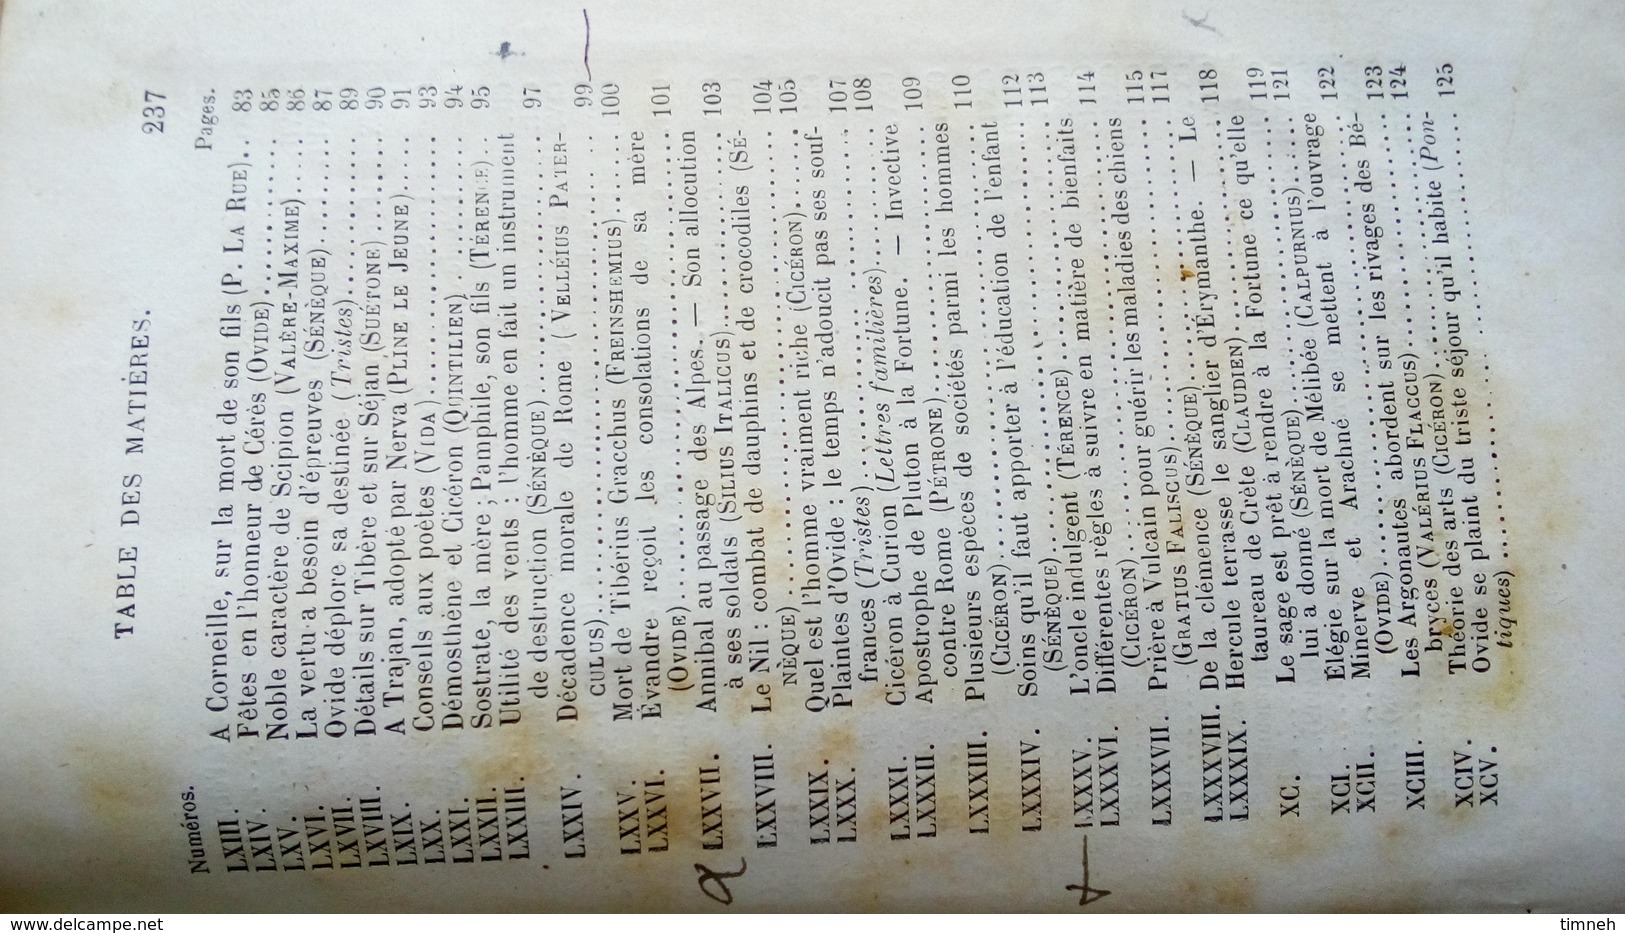 TABLE DES MATIÈRES. 237
Numéros. Pages.
LXIII. A Corneille, sur la mort de son fils (P. LA RUE).. 83
LXIV. Fêtes en l'honneur de Cérès (OVIDE)............ 85
LXV. Noble caractère de Scipion (VALÈRE-MAXIME)..... 86
LXVI. La vertu a besoin d'épreuves (SÉNÈQUE)......... 87
LXVII. Ovide déplore sa destinée (Tristes)............ 89
LXVIII. Détails sur Tibère et sur Séjan (SUÉTONE)...... 90
LXIX. A Trajan, adopté par Nerva (PLINE LE JEUNE)..... 91
LXX. Conseils aux poètes (VIDA)..................... 93
LXXI. Démosthène et Cicéron (QUINTILIEN)............. 94
LXXII. Sostrate, la mère; Pamphile, son fils (TÉRENCE).. 95
LXXIII. Utilité des vents : l'homme en fait un instrument
de destruction (SÉNÈQUE)................ 97
LXXIV. Décadence morale de Rome (VELLÉIUS PATER-
CULUS)................................. 99
LXXV. Mort de Tibérius Gracchus (FREINSHEMIUS)...... 100
LXXVI. Évandre reçoit les consolations de sa mère
(OVIDE)................................ 101
LXXVII. Annibal au passage des Alpes. — Son allocution
à ses soldats (SILIUS ITALICUS)............ 103
LXXVIII. Le Nil : combat de dauphins et de crocodiles (SÉ-
NÈQUE)................................. 104
LXXIX. Quel est l'homme vraiment riche (CICÉRON)...... 105
LXXX. Plaintes d'Ovide : le temps n'adoucit pas ses souf-
frances (Tristes)........................ 107
LXXXI. Cicéron à Curion (Lettres familières).......... 108
LXXXII. Apostrophe de Pluton à la Fortune. — Invective
contre Rome (PÉTRONE)................... 109
LXXXIII. Plusieurs espèces de sociétés parmi les hommes
(CICÉRON).............................. 110
LXXXIV. Soins qu'il faut apporter à l'éducation de l'enfant
(SÉNÈQUE).............................. 112
LXXXV. L'oncle indulgent (TÉRENCE)................... 113
LXXXVI. Différentes règles à suivre en matière de bienfaits
(CICÉRON).............................. 114
LXXXVII. Prière à Vulcain pour guérir les maladies des chiens
(GRATIUS FALISCUS)...................... 115
LXXXVIII. De la clémence (SÉNÈQUE)..................... 117
LXXXIX. Hercule terrasse le sanglier d'Érymanthe. — Le
taureau de Crète (CLAUDIEN)............... 118
XC. Le sage est prêt à rendre à la Fortune ce qu'elle
lui a donné (SÉNÈQUE)................... 119
XCI. Élégie sur la mort de Mélibée (CALPURNIUS)...... 121
XCII. Minerve et Arachné se mettent à l'ouvrage
(OVIDE)................................ 122
XCIII. Les Argonautes abordent sur les rivages des Bé-
bryces (VALÉRIUS FLACCUS)................ 123
XCIV. Théorie des arts (CICÉRON).................... 124
XCV. Ovide se plaint du triste séjour qu'il habite (Pon-
tiques)................................ 125
www.delcampe.net
timneh